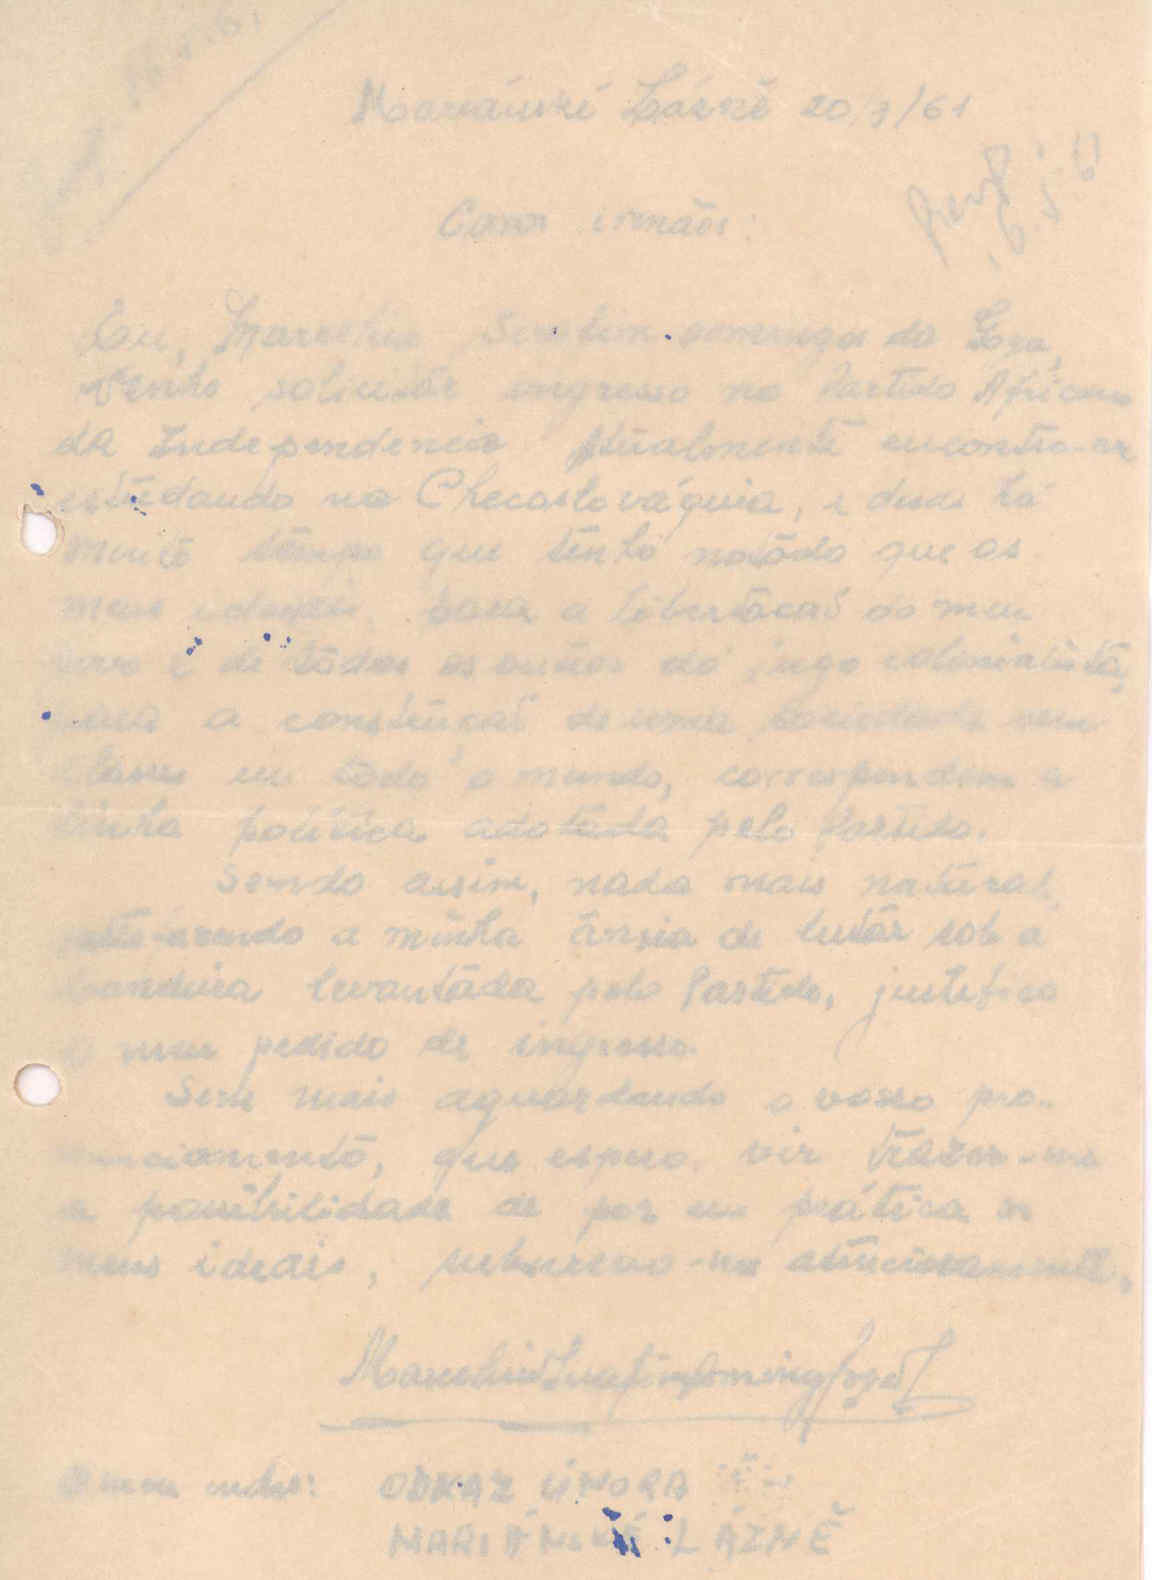 Mariánské Lázně 20/3/61
Caros irmãos:
Eu, Marcelino Serafim Domingos da
Venho solicitar ingresso no Partido Africano
da Independencia Atualmente encontro-me
estudando na Checoslováquia, e desde há
muito tempo que tenho notado que os
meus ideais, para a libertacaõ do meu
povo e de todos os outros do jugo colonialista,
para a construçaõ de uma sociedade sem
classes em todo o mundo, correspondem a
linha política adotada pelo Partido.
Sendo assim, nada mais natural,
a minha ânsia de lutar sob a
bandeira levantada pelo Partido, justifico
o meu pedido de ingresso.
Sem mais aguardando o vosso pro-
nunciamento, que espero vir trazer-me
a possibilidade de por em prática os
meus ideais, subscrevo-me atenciosamente,
O meu endes: ODKAZ ÚNORA
MARIÁNSKÉ LÁZNĚ